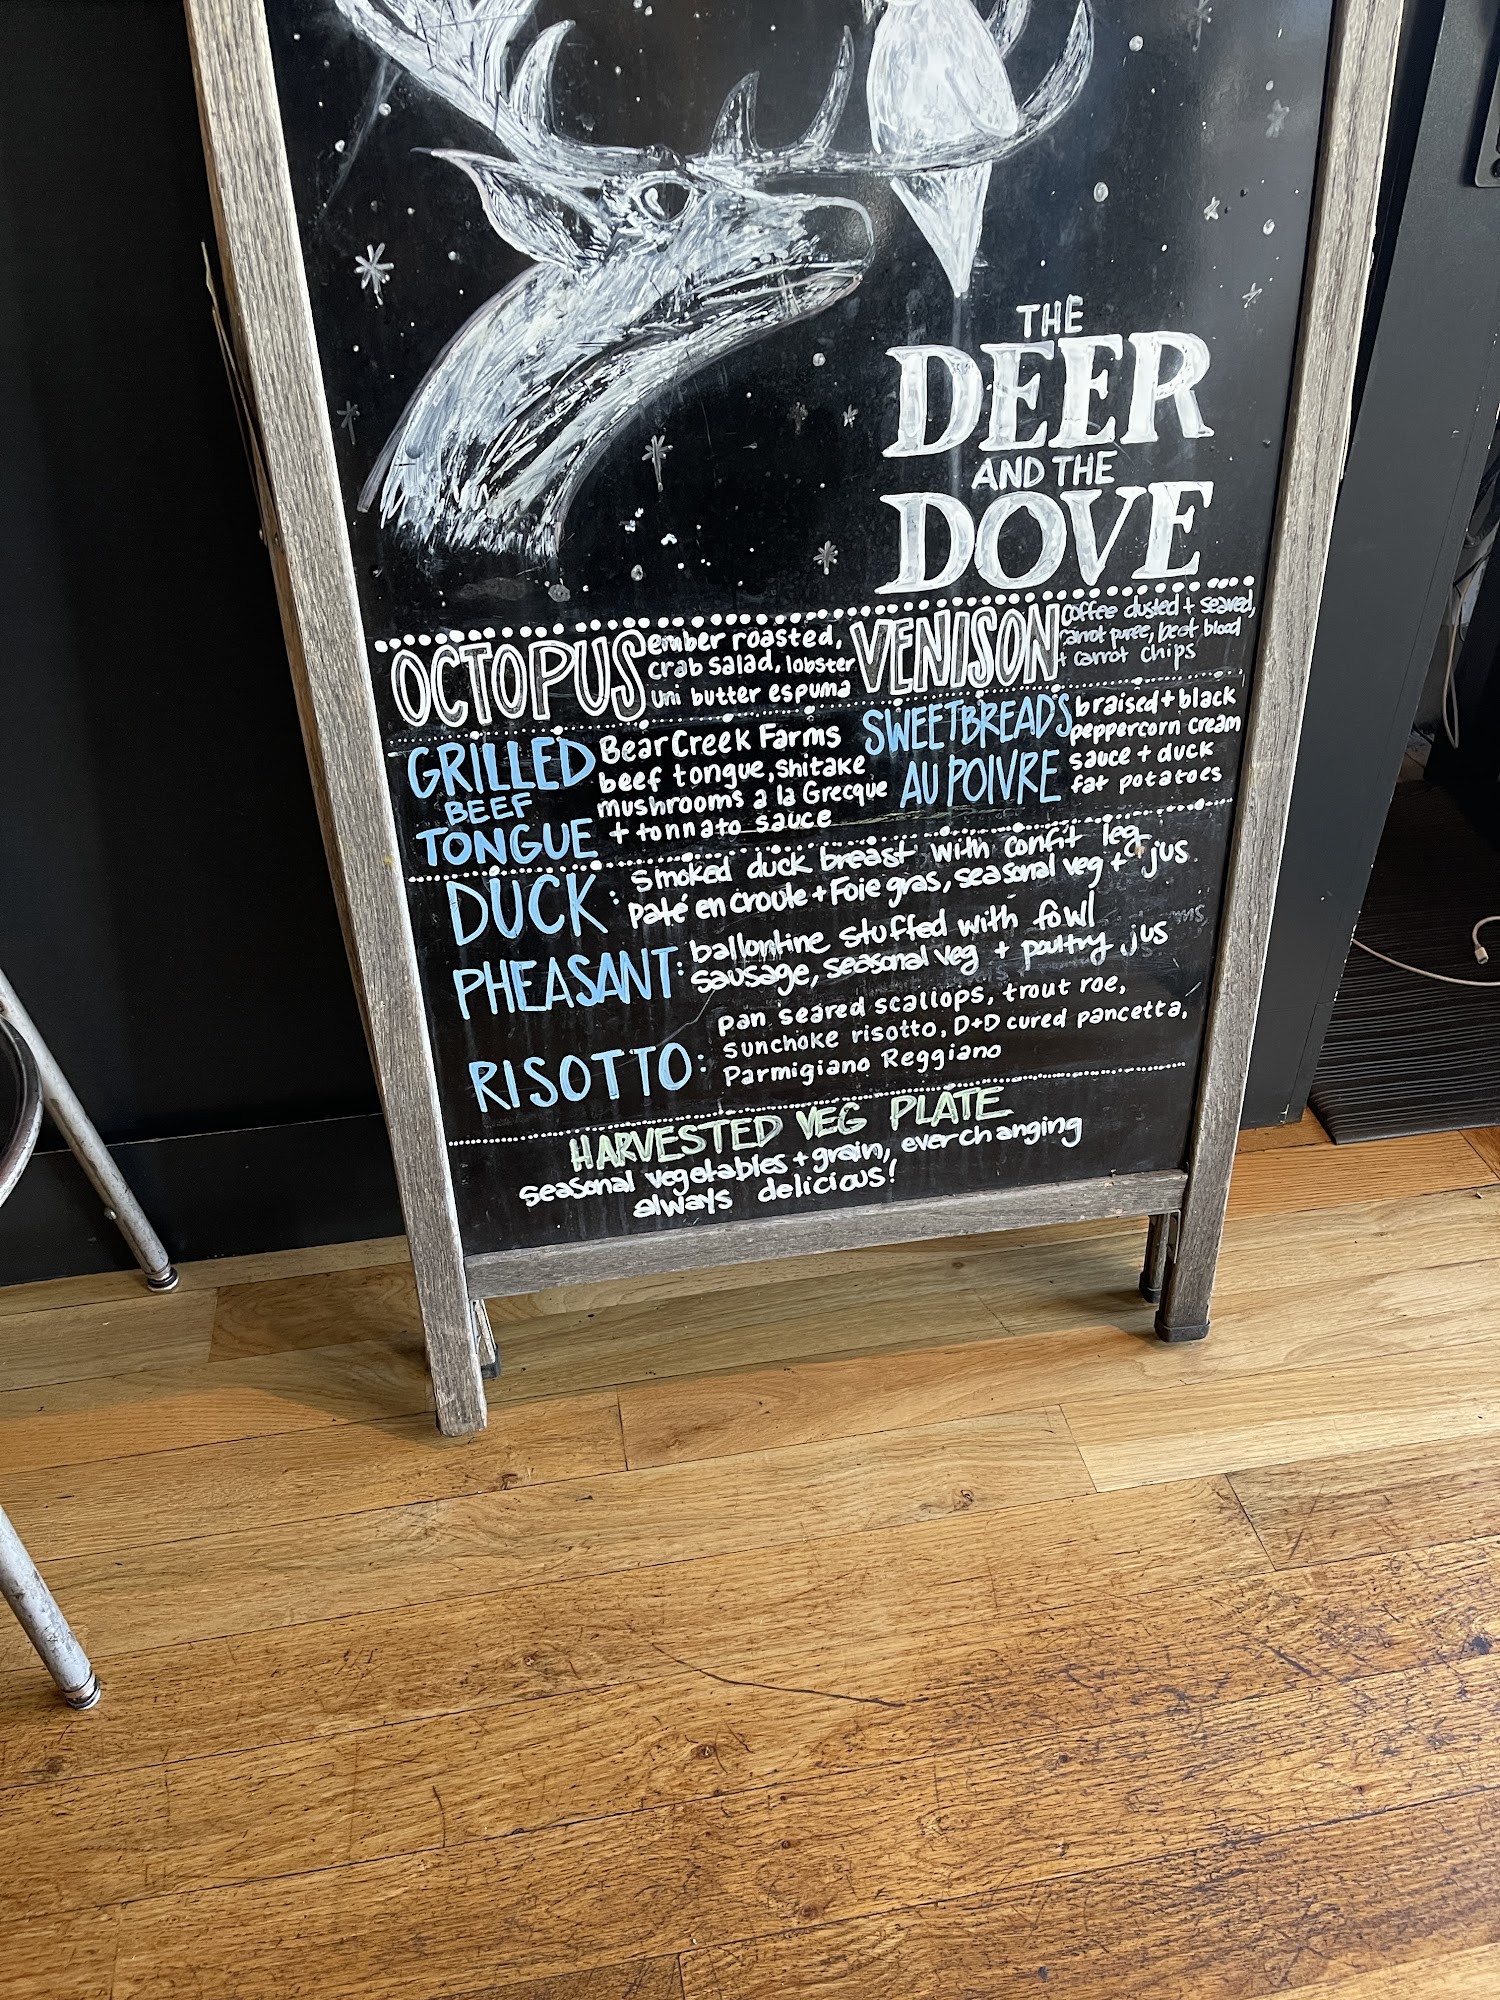 THE
DEER
AND THE
DOVE
OCTOPUS
ember roasted,
crab salad, lobster
uni butter espuma
VENISON
coffee dusted + seared,
carrot puree, beet blood
+ carrot chips
GRILLED
BEEF
TONGUE
Bear Creek Farms
beef tongue, shitake
mushrooms a la Grecque
+ tonnato sauce
SWEETBREADS
AU POIVRE
braised + black
peppercorn cream
sauce + duck
fat potatoes
DUCK:
smoked duck breast with confit leg
paté en croute + Foie gras, seasonal veg + jus
PHEASANT:
ballontine stuffed with fowl
sausage, seasonal veg + poultry jus
RISOTTO:
pan seared scallops, trout roe,
sunchoke risotto, D+D cured pancetta,
Parmigiano Reggiano
HARVESTED VEG PLATE
seasonal vegetables + grain, everchanging
always delicious!